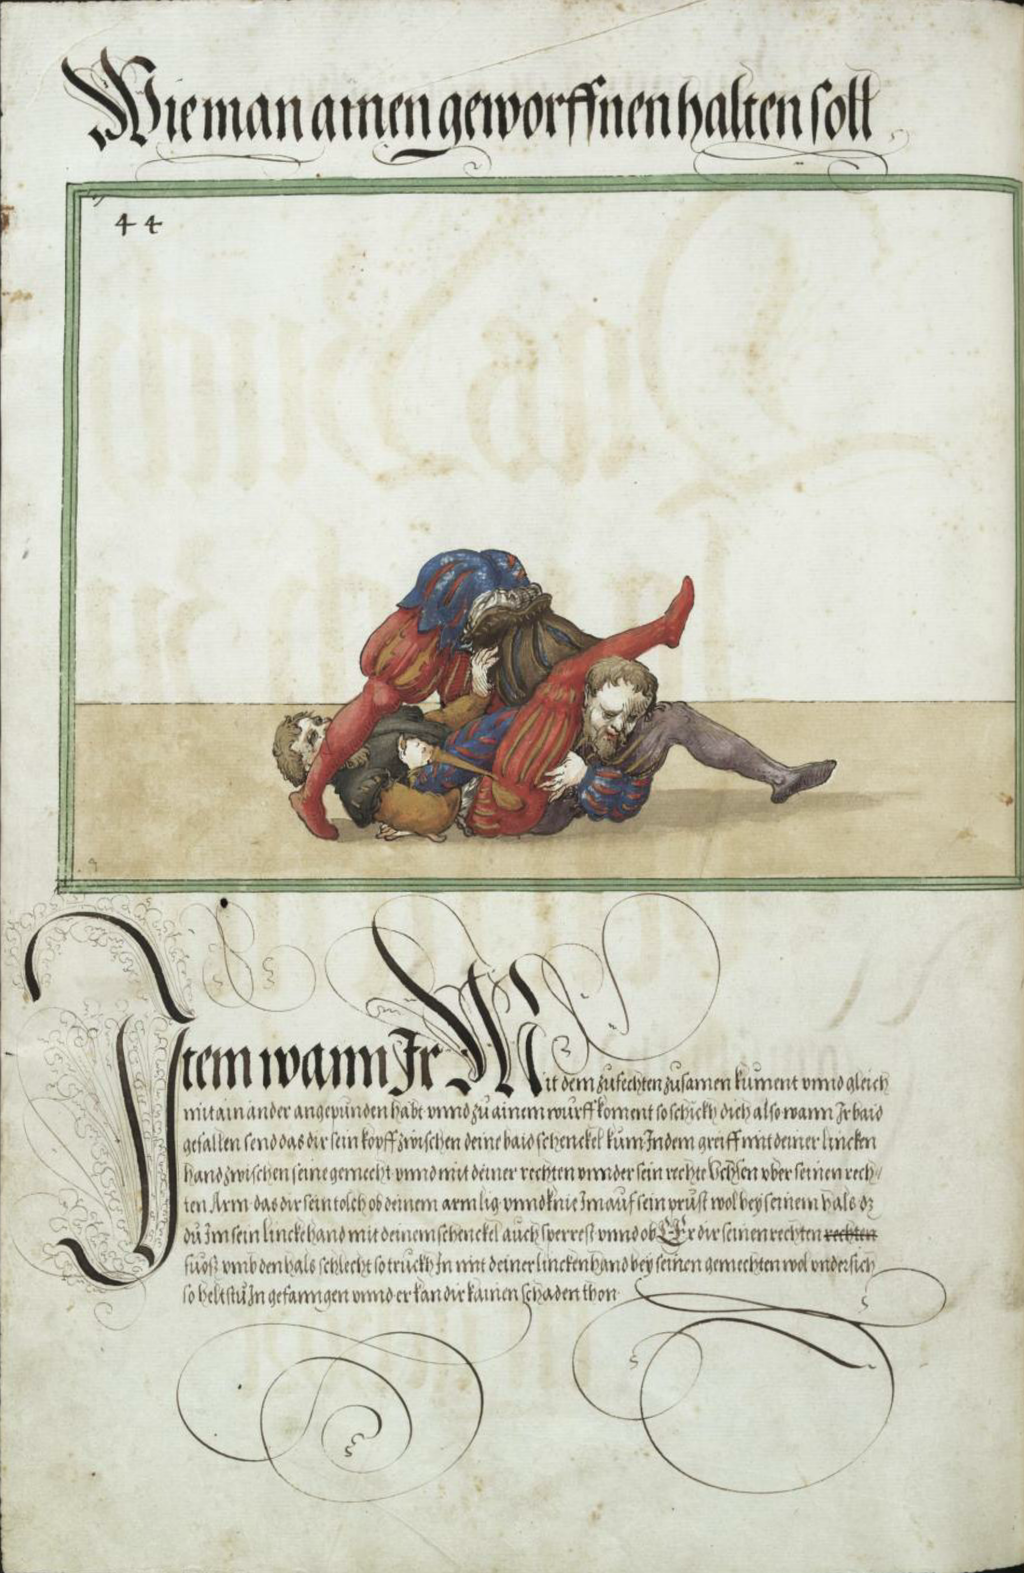 Wie man ainen geworffnen halten soll
44
Item wann Ir Mit dem zufechten zusamen kument vnnd gleich
mit ainander angepunden habt vnnd zu ainem wurff koment so schickh dich also wann Ir baid
gefallen send das dir sein kopff zwischen deine baid schenckel kum Indem greiff mit deiner lincken
hand zwischen seine gemecht vnnd mit deiner rechten vnnder sein rechte Vchsen vber seinen rech/
ten Arm das dir sein tolch ob deinem arm lig vnnd knie Im auf sein prust wol bey seinem hals dz
du Im sein lincke hand mit deinem schenckel auch sperrest vnnd ob Er dir seinen rechten rechten
fuosz vmb den hals schlecht so truckh In mit deiner lincken hand bey seinen gemechten wol vndersich
so heltstu In gefanngen vnnd er kan dir kainen schaden thon